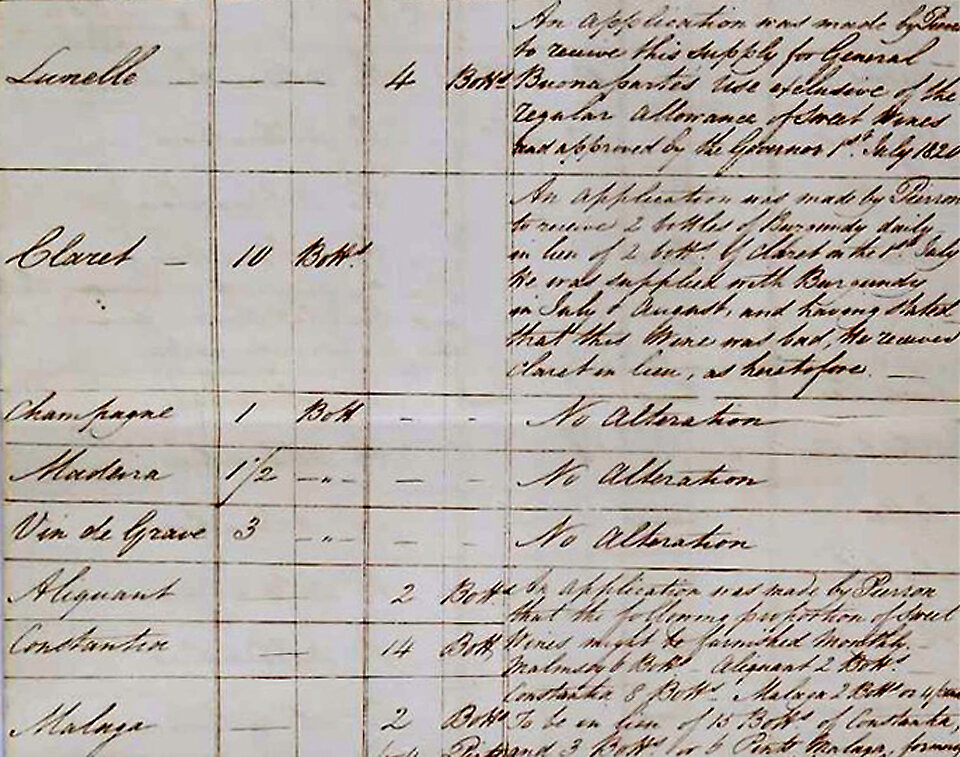 An application was made by
to receive this supply for General
Lunelle — — — 4 Botts Buonaparte's use exclusive of the
regular allowance of Sweet Wines
and approved by the Governor 1st. July 1820
An application was made by Pierron
to receive 2 bottles of Burgundy daily
Claret — 10 Botts. in lieu of 2 botts. of Claret on the 1st. July
he was supplied with Burgundy
in July & August, and having stated
that this Wine was bad, he receives
Claret in lieu, as heretofore. —
Champagne 1 Bott - - No Alteration
Madeira 1 1/2 —"— — - No Alteration
Vin de Grave 3 —"— — - No Alteration
Aliquant — 2 Botts An application was made by Pierron
that the following proportion of Sweet
Constantia — 14 Bott Wines might be furnished Monthly—
Malmsey 6 Botts — Aliquant 2 Botts.
Constantia 8 Botts. Malaga 2 Botts or 4
Malaga — 2 Botts To be in lieu of 15 Botts of Constantia,
and 3 Botts or 6 Pints Malaga,